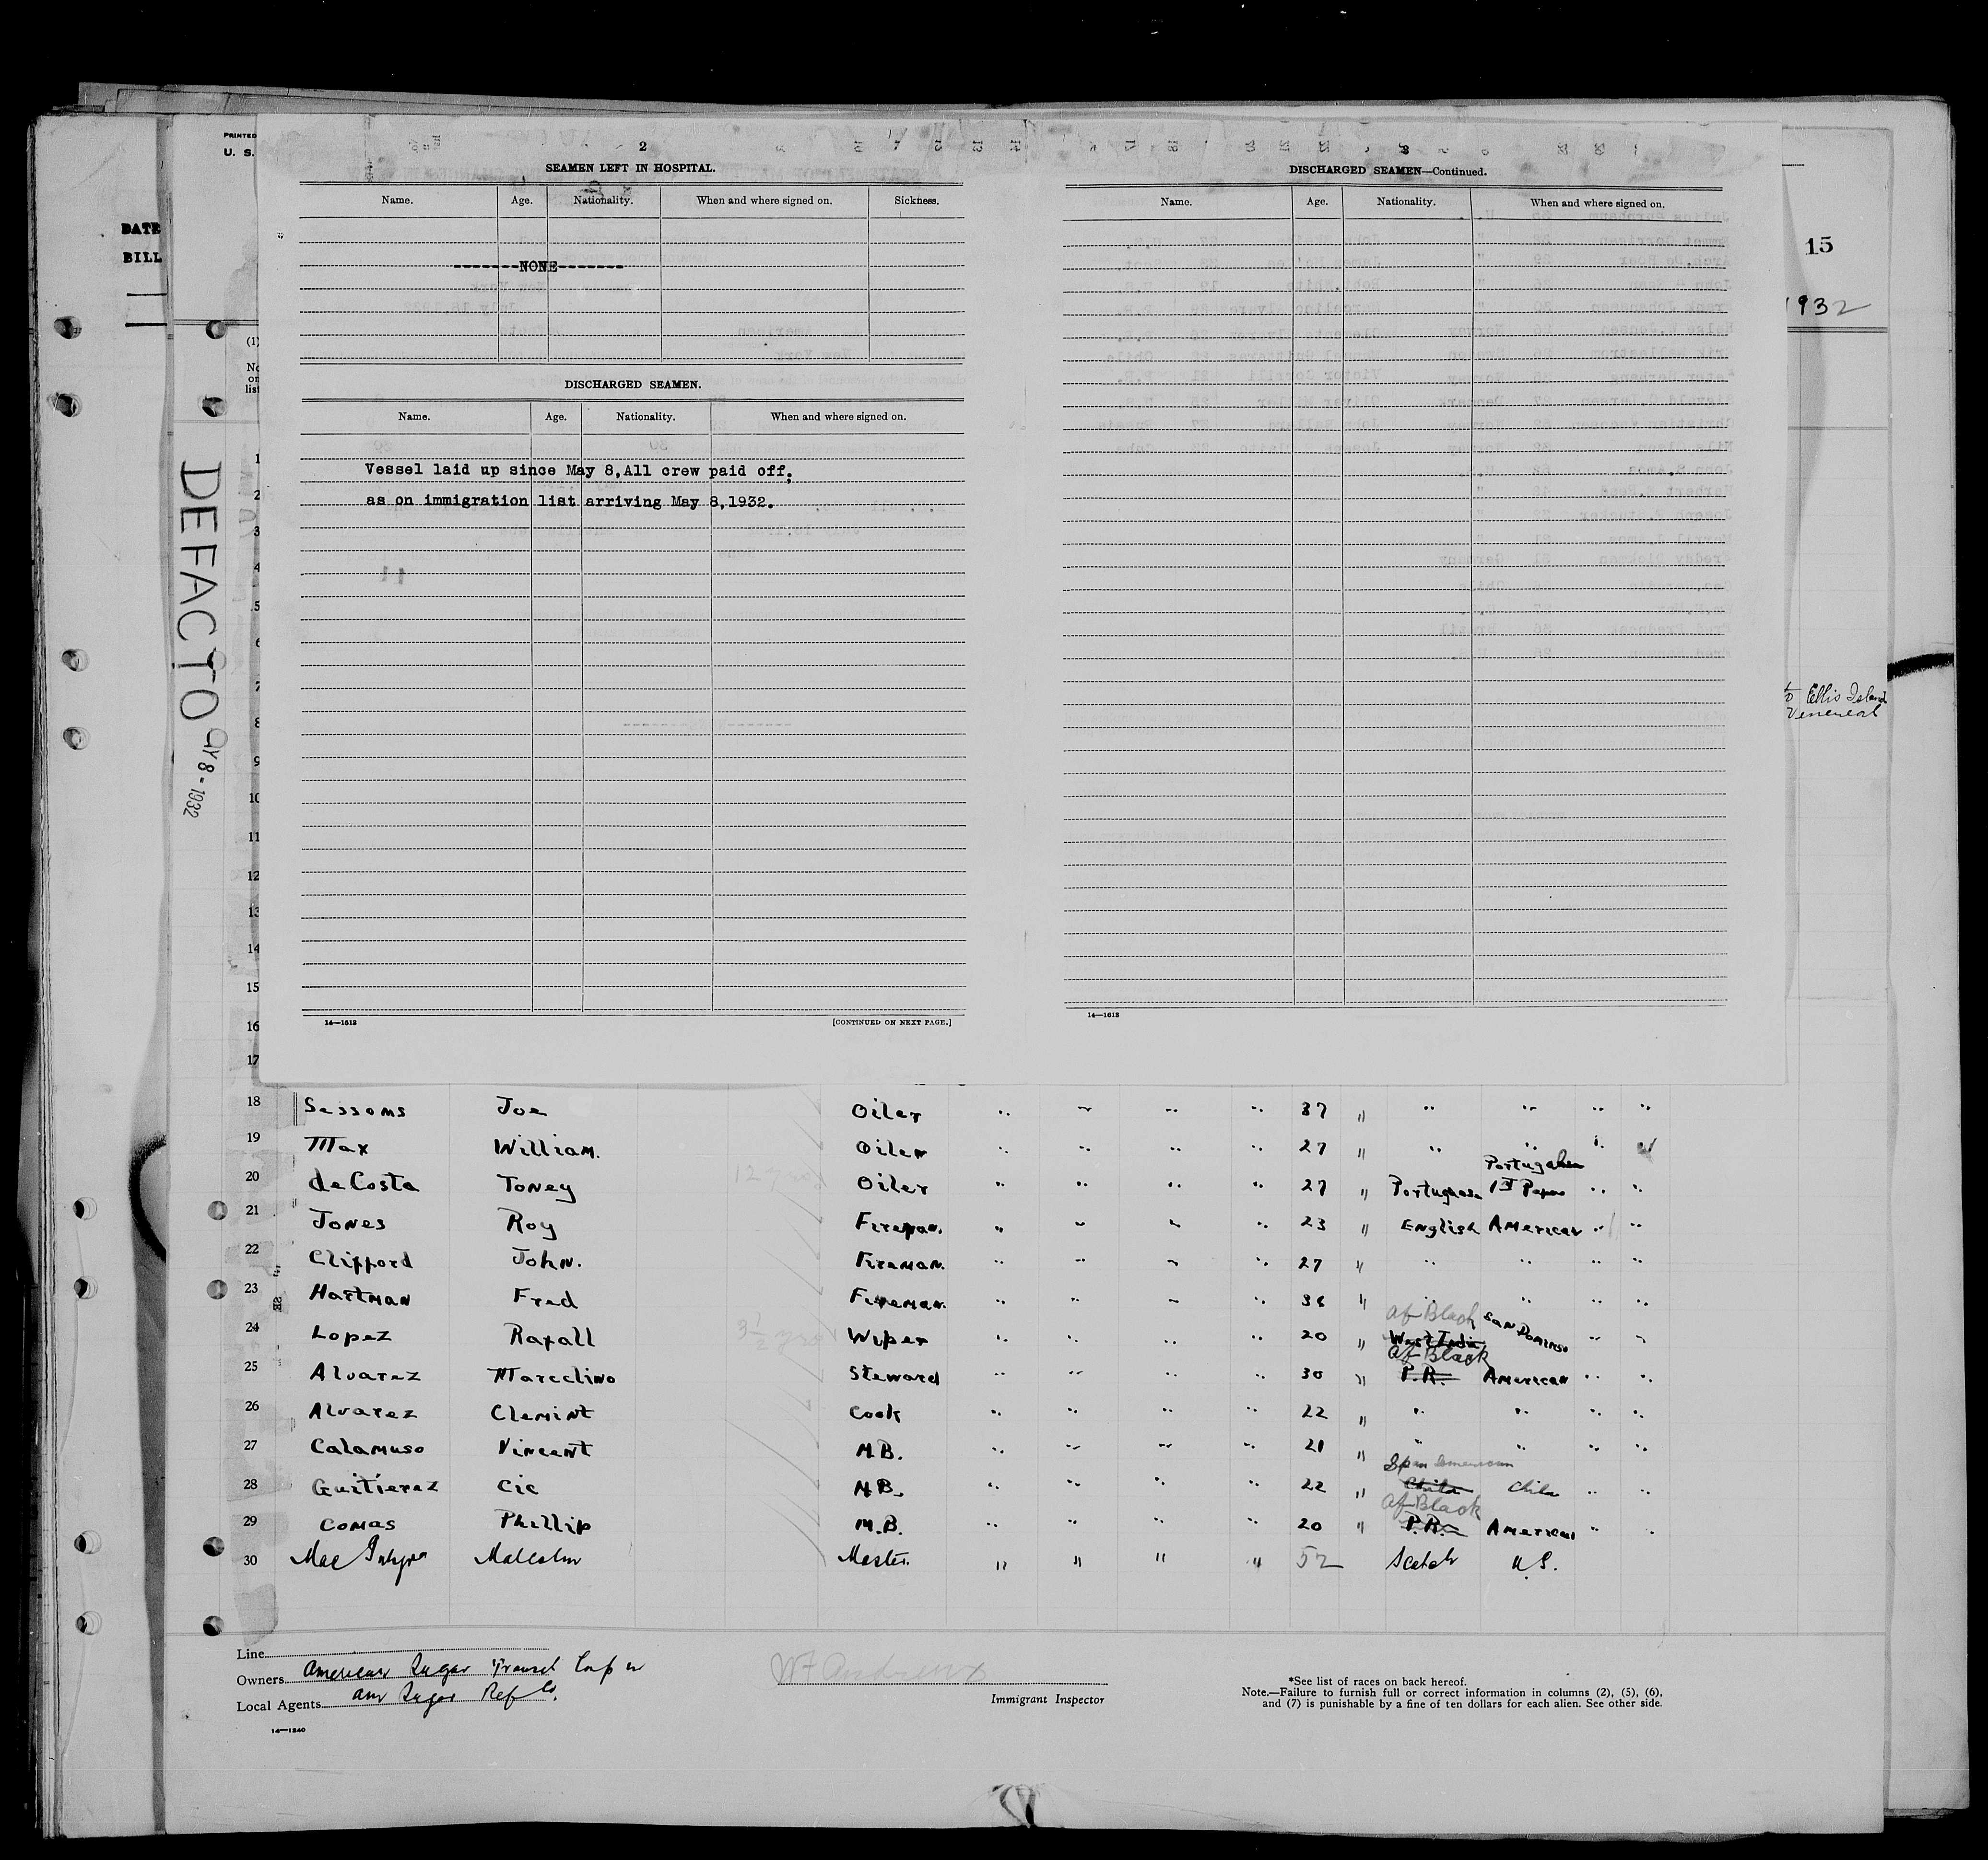 PRINTED
U. S.
DATE
BILL
15
1932
2
SEAMEN LEFT IN HOSPITAL.
Name. Age. Nationality. When and where signed on. Sickness.
-------NONE-------
DISCHARGED SEAMEN.
Name. Age. Nationality. When and where signed on.
Vessel laid up since May 8,All crew paid off;
as on immigration list arriving May 8,1932.
14—1613 [CONTINUED ON NEXT PAGE.]
3
DISCHARGED SEAMEN—Continued.
Name. Age. Nationality. When and where signed on.
14—1613
to Ellis Island
Venereal
DEFACTO
8 - 1932
(1)
No
on
list
1
2
3
4
5
6
7
8
9
10
11
12
13
14
15
16
17
18 Sessoms Joe Oiler " " " " 37 " " " " "
19 Max William. Oiler " " " " 27 " " " "
Portuguese
20 deCosta Toney Oiler " " " " 27 " Portuguese 1st Paper " "
21 Jones Roy Fireman. " " " " 23 " English American " "
22 Clifford John. Fireman. " " " " 27 " " " " "
23 Hartman Fred Fireman. " " " " 36 " " " " "
Af Black San Domingo
24 Lopez Rafall 3½ yrs Wiper " " " " 20 " West India " "
Af Black
25 Alvarez Marcelino Steward " " " " 30 " P.R. American " "
26 Alvarez Clemint Cook " " " " 22 " " " " "
27 Calamuso Vincent M.B. " " " " 21 " " " " "
Span American
28 Guitierez Cie M.B. " " " " 22 " Chile Chile " "
Af Black
29 Comas Phillip M.B. " " " " 20 " P.R. American " "
30 Malcolm Master. " " " " 52 Scotch U.S.
Line
Owners American Sugar Transit Corp
Local Agents Am Sugar Ref Co.
14—1240
Andrews
Immigrant Inspector
*See list of races on back hereof.
Note.—Failure to furnish full or correct information in columns (2), (5), (6),
and (7) is punishable by a fine of ten dollars for each alien. See other side.